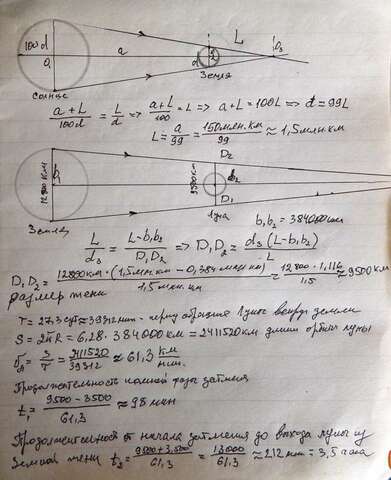 L
100d
a
d
O₃
Земля
Солнце
(a+L)/100d = L/d => (a+L)/100 = L => a+L = 100L => d = 99L
L = a/99 = 150 млн.км/99 ≈ 1,5 млн.км
D₂
12800 км
9500 км
D₁
Земля
Луна
b₁b₂ = 384000 км
L/d₃ = (L-b₁b₂)/D₁D₂ => D₁D₂ = d₃(L-b₁b₂)/L
D₁D₂ = 12800 км · (1,5 млн.км - 0,384 млн км)/1,5 млн.км ≈ 12800 · 1,116/1,5 ≈ 9500 км
размер тени
T = 27,3 сут ≈ 39312 мин - период обращения Луны вокруг земли
S = 2πR = 6,28 · 384000 км = 2411520 км длина орбиты луны
= S/T = 2411520/39312 ≈ 61,3 км/мин.
Продолжительность полной фазы затмения
t₁ = (9500 - 3500)/61,3 ≈ 98 мин
Продолжительность от начала затмения до выхода луны из
земной тени t₂ = (9500 + 3500)/61,3 = 13000/61,3 ≈ 212 мин = 3,5 часа